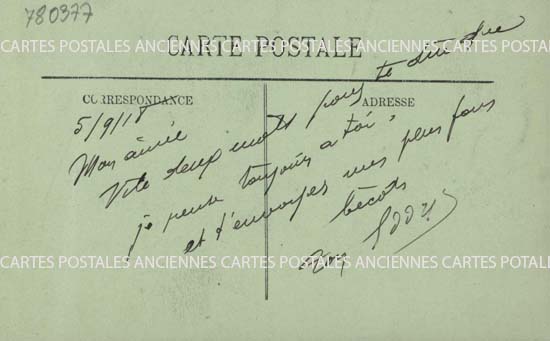 780377
CARTE POSTALE
CARTES POSTALES ANCIENNES CARTES POSTALES ANCIENNES CARTES POSTALES
CORRESPONDANCE
ADRESSE
5/9/18
Mon aimée
Vite deux mots pour te dire que
je pense toujours a toi
et t'envoyer mes plus fous
bécots
CARTES POSTALES ANCIENNES CARTES POSTALES ANCIENNES CARTES POTALES